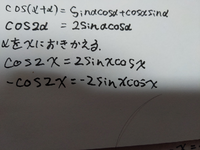 cos(α+α) = Sinαcosα+cosαsinα
cos2α = 2sinαcosα
αをxにおきかえる.
cos2x=2sinxcosx
-cos2x=-2sinxcosx